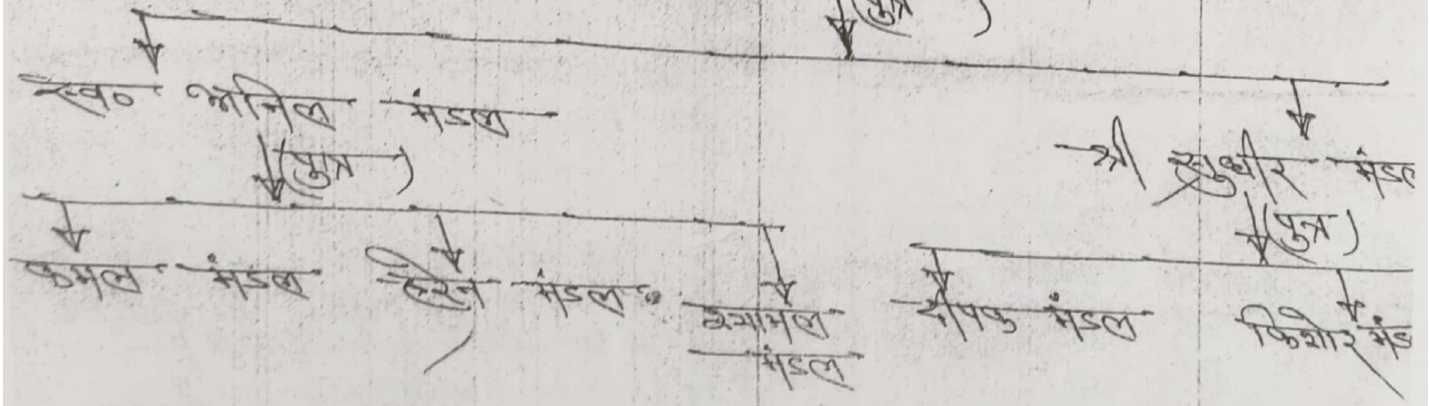 (पुत्र)
स्व० अनिल मंडल
श्री सुधीर मंडल
(पुत्र)
(पुत्र)
कमल मंडल हरेन मंडल श्यामल मंडल दीपक मंडल किशोर मंड